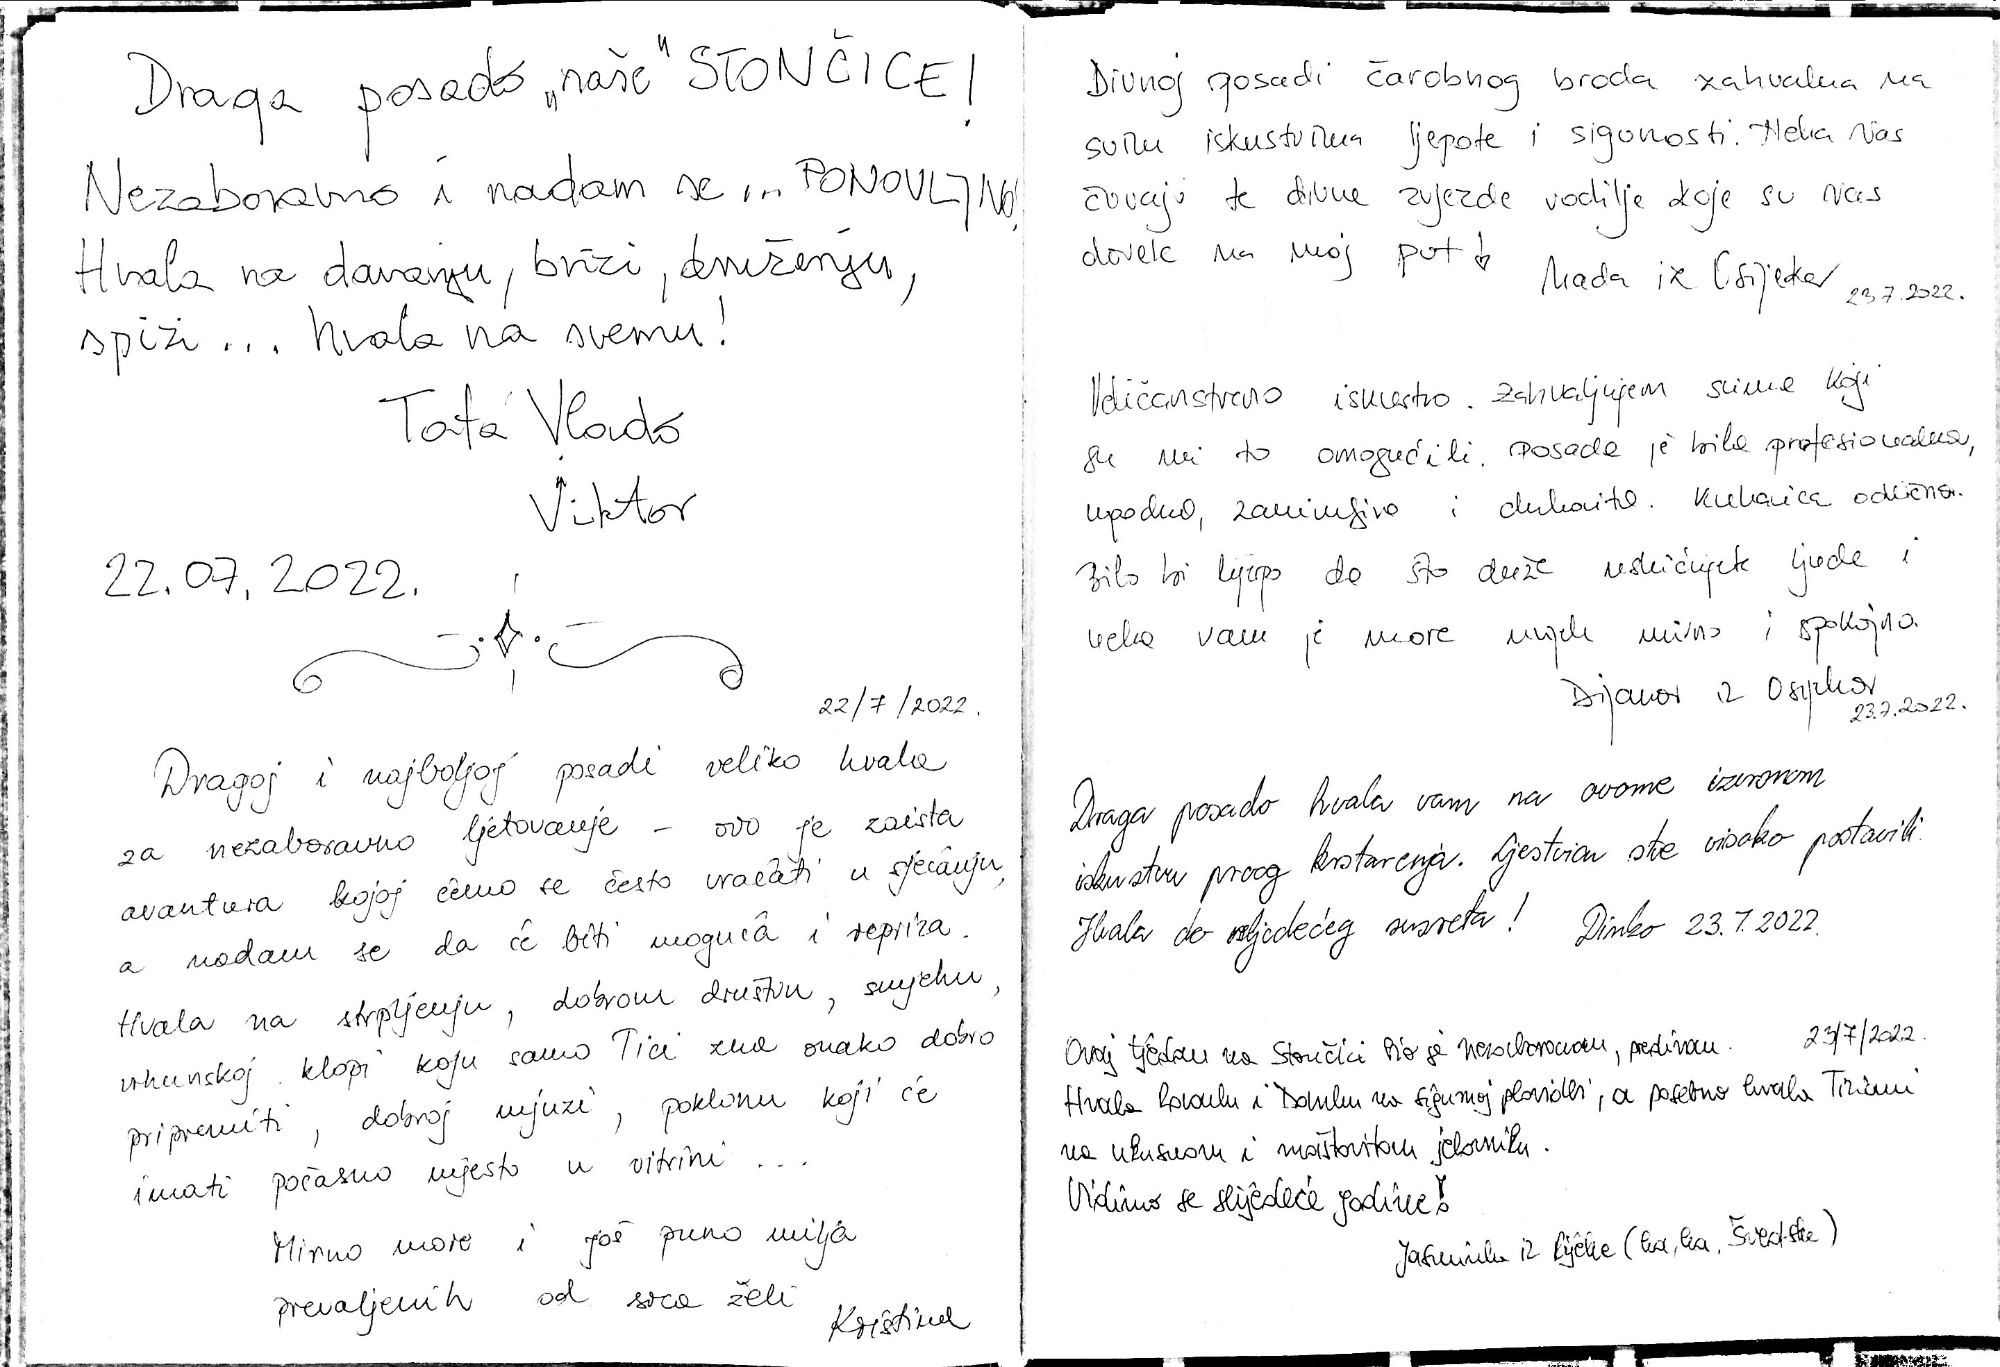 Draga posado „naše“ STONČICE!
Nezaboravno i nadam se ... PONOVLJIVO!
Hvala na davanju, brizi, druženju,
spizi ... hvala na svemu!
Tata Vlado
Viktor
22.07.2022.
22/7/2022.
Dragoj i najboljoj posadi veliko hvala
za nezaboravno ljetovanje – ovo je zaista
avantura kojoj ćemo se često vraćati u sjećanju,
a nadam se da će biti moguća i repriza.
Hvala na strpljenju, dobrom društvu, smjehu,
vrhunskoj klopi koju samo Tici zna onako dobro
pripremiti, dobroj mjuzi, poklonu koji će
imati počasno mjesto u vitrini ...
Mirno more i još puno milja
prevaljenih od srca želi
Kristina
Divnoj posadi čarobnog broda zahvalna na
svim iskustvima ljepote i sigurnosti. Neka Vas
čuvaju te divne zvjezde vodilje koje su Vas
dovele na moj put!
Nada iz Osijeka 23.7.2022.
Veličanstveno iskustvo. Zahvaljujem svima koji
su mi to omogućili. Posada je bila profesionalna,
ugodna, zanimljiva i duhovita. Kuharica odlična.
Bilo bi lijepo da što duže usrićujete ljude i
neka vam je more uvijek mirno i spokojno.
Dijana iz Osijeka
23.7.2022.
Draga posado hvala vam na ovome izvrsnom
iskustvu prvog krstarenja. Ljestvicu ste visoko postavili.
Hvala do sljedećeg susreta! Dinko 23.7.2022.
Ovaj tjedan na Stončici bio je nezaboravan, predivan. 23/7/2022.
Hvala i na sigurnoj plovidbi, a posebno hvala Ticiani
na ukusnom i maštovitom jelovniku.
Vidimo se slijedeće godine!
Jasminka iz Rijeke (ha, ha, Švedske)